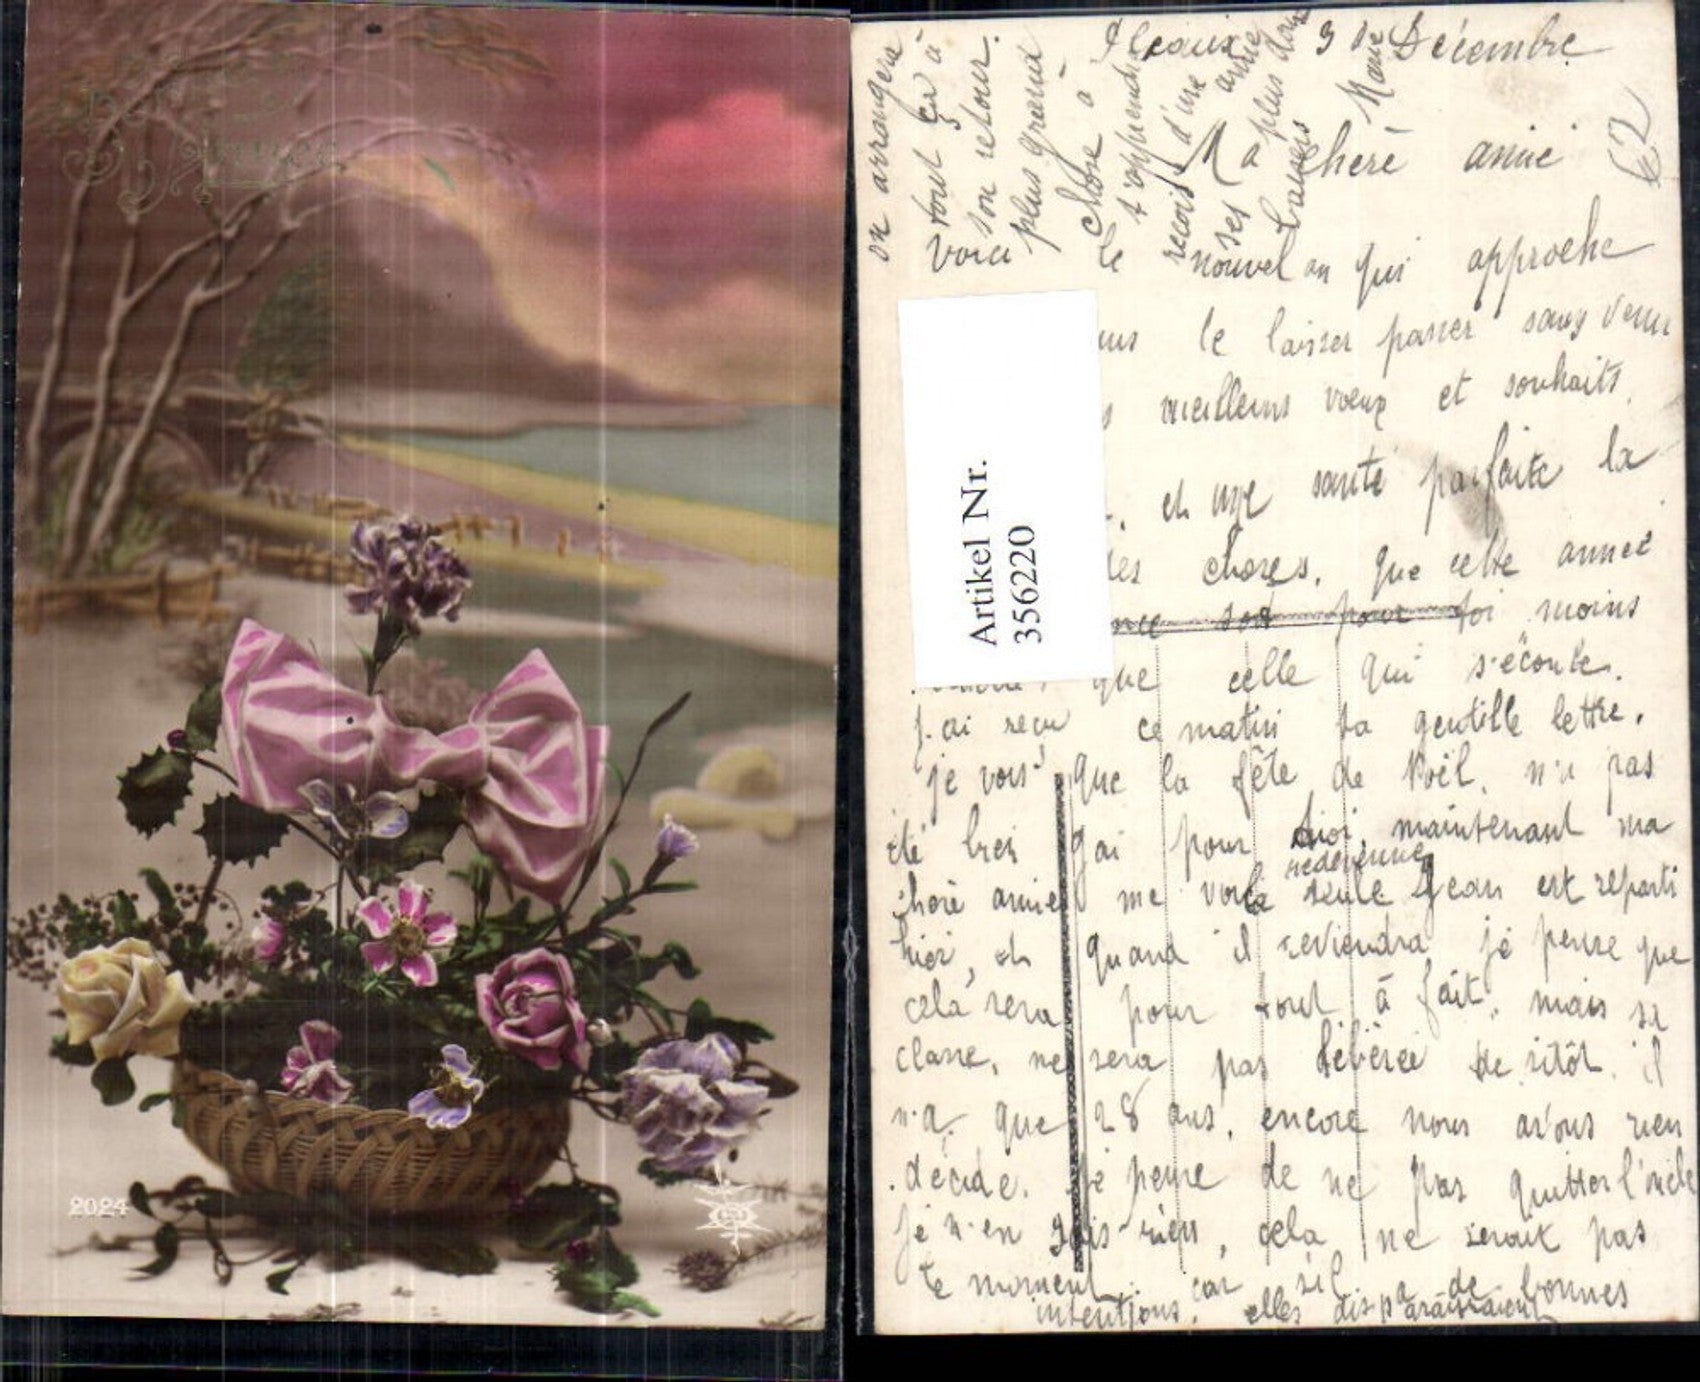 Bonne
Année
2024
Décembre
Ma chère amie
62
Voici le nouvel an qui approche
le laisser passer sans venir
meilleurs vœux et souhaits.
et une santé parfaite la
des choses. Que cette année
soit pour toi moins
que celle qui s'écoule.
j'ai reçu ce matin ta gentille lettre.
je vois que la fête de Noël, n'a pas
été bien gai pour toi, maintenant ma
chère amie me voila redevenue seule Jean est reparti
hier, et quand il reviendra je pense que
cela sera pour tout à fait, mais sa
classe, ne sera pas libérée de sitôt. il
n'a que 28 ans, encore nous avons rien
décidé. je pense de ne pas quitter
je n'en sais rien, cela ne serait pas
le moment. car s'il a de bonnes
intentions. elles disparaîtraient
on arrangera
tout ça à
son retour.
plus grand
chose à
t'apprendre
reçois d'une amie
ses plus doux
baisers
Marie
Artikel Nr.
356220